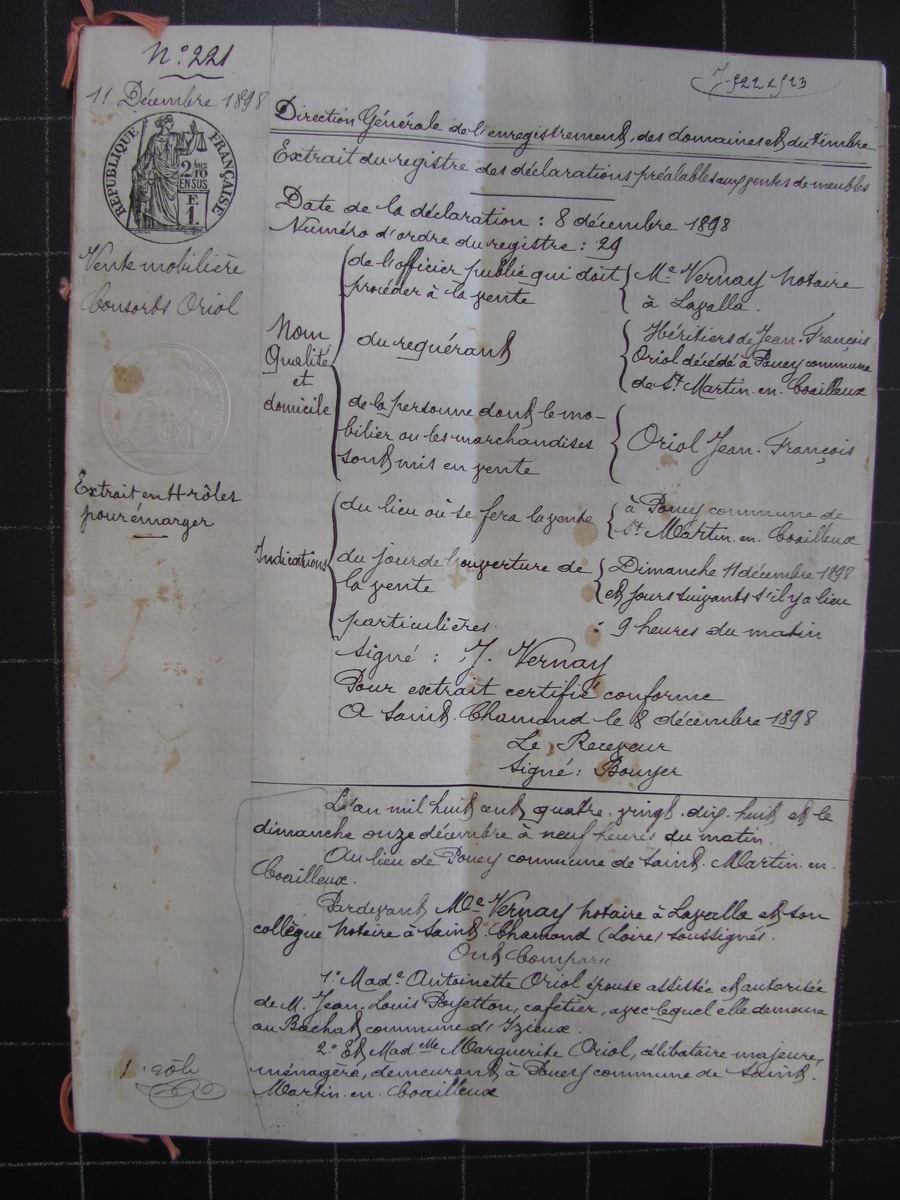 N° 221
11 Décembre 1898
RÉPUBLIQUE FRANÇAISE
2/10
EN SUS
F.
1.
Vente mobilière
Consorts Oriol
Extrait en 4 rôles
pour émarger
J. 522 & 523
Direction Générale de l'enregistrement, des domaines et du timbre
Extrait du registre des déclarations préalables aux ventes de meubles
Date de la déclaration : 8 décembre 1898
Numéro d'ordre du registre : 29
Nom
Qualité
et
domicile
de l'officier public qui doit
procéder à la vente
Me Vernay notaire
à Lavalla.
du requérant
Héritiers de Jean-François
Oriol décédé à Poucy commune
de St Martin-en-Coailleux
de la personne dont le mo-
bilier ou les marchandises
sont mis en vente
Oriol Jean-François
Indications
du lieu où se fera la vente
à Poucy commune de
St Martin-en-Coailleux
du jour de l'ouverture de
la vente
Dimanche 11 décembre 1898
et jours suivants s'il y a lieu
particulières : 9 heures du matin
Signé : J. Vernay
Pour extrait certifié conforme
A Saint-Chamond le 8 décembre 1898
Le Receveur
Signé : Bouyer
L'an mil huit cent quatre-vingt-dix-huit et le
dimanche onze décembre à neuf heures du matin.
Au lieu de Poucy commune de Saint-Martin-en-
Coailleux.
Pardevant Me Vernay notaire à Lavalla et son
collègue notaire à Saint-Chamond (Loire) soussignés.
Ont Comparu
1° Made Antoinette Oriol épouse assistée et autorisée
de M. Jean-Louis Poyetton, cafetier, avec lequel elle demeure
au Bachat commune d'Izieux.
2° Et Madelle Marguerite Oriol, célibataire majeure,
ménagère, demeurant à Poucy commune de Saint-
Martin-en-Coailleux
1er rôle